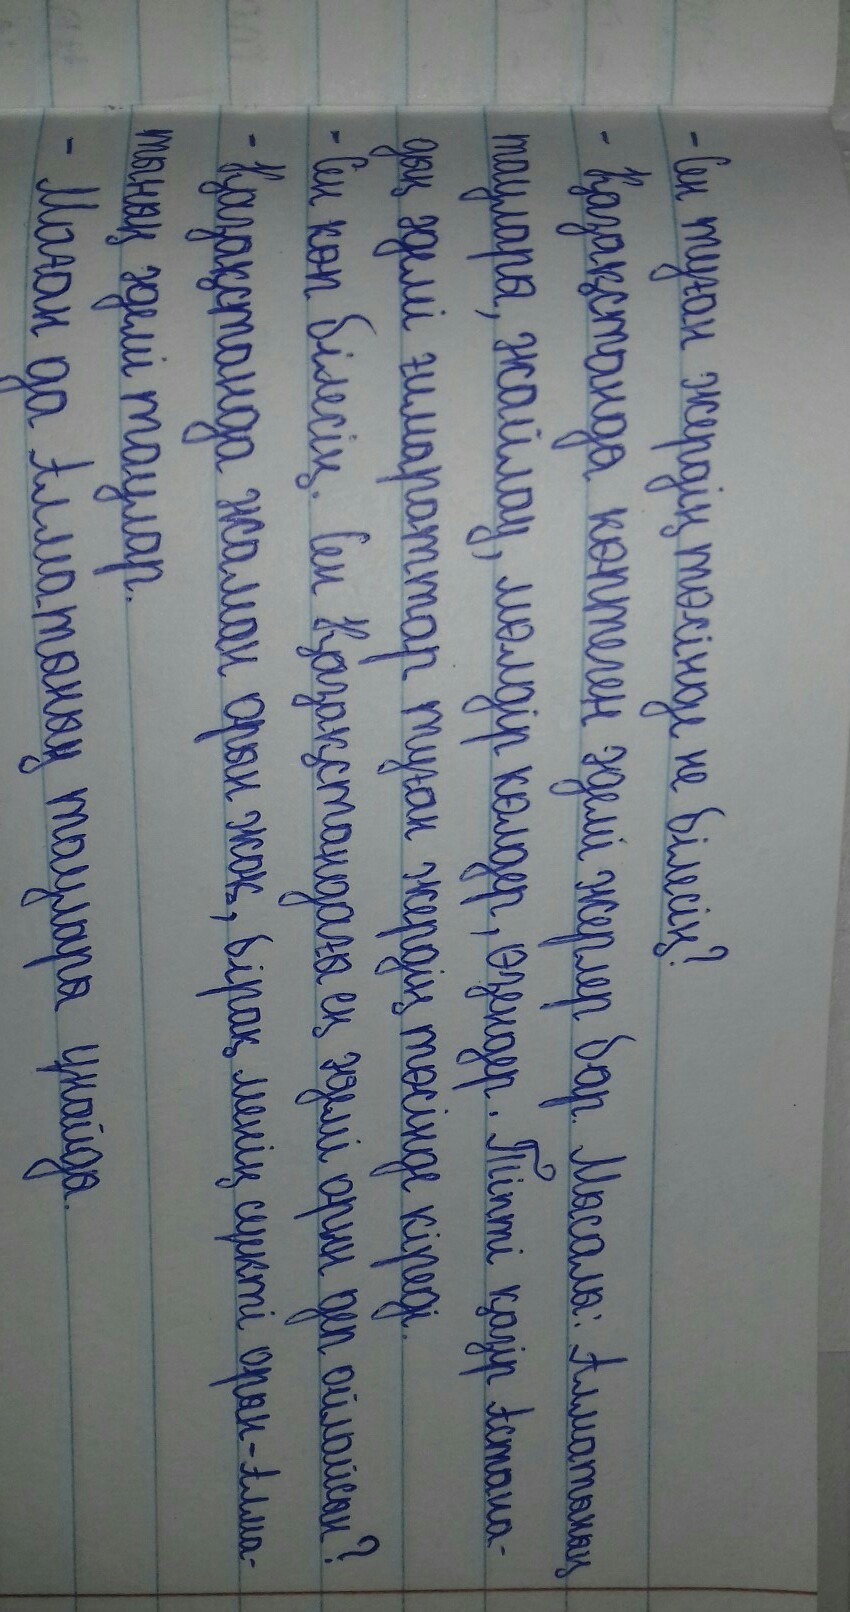 - Сен туған жердің төсінде не білесің?
- Қазақстында көптеген әдемі жерлер бар. Мысалы: Алматының
таулары, жайлау, мөлдір көлдер, өзендер. Тіпті қазір Астана-
дың әдемі ғимараттар туған жердің төсінде кіреді.
- Сен көп білесің. Сен Қазақстандағы ең әдемі орын деп ойлайсың?
- Қазақстанда жаман орын жоқ, бірақ менің сүйікті орын-Алма-
тының әдемі таулар.
- Маған да Алматының таулары ұнайды.